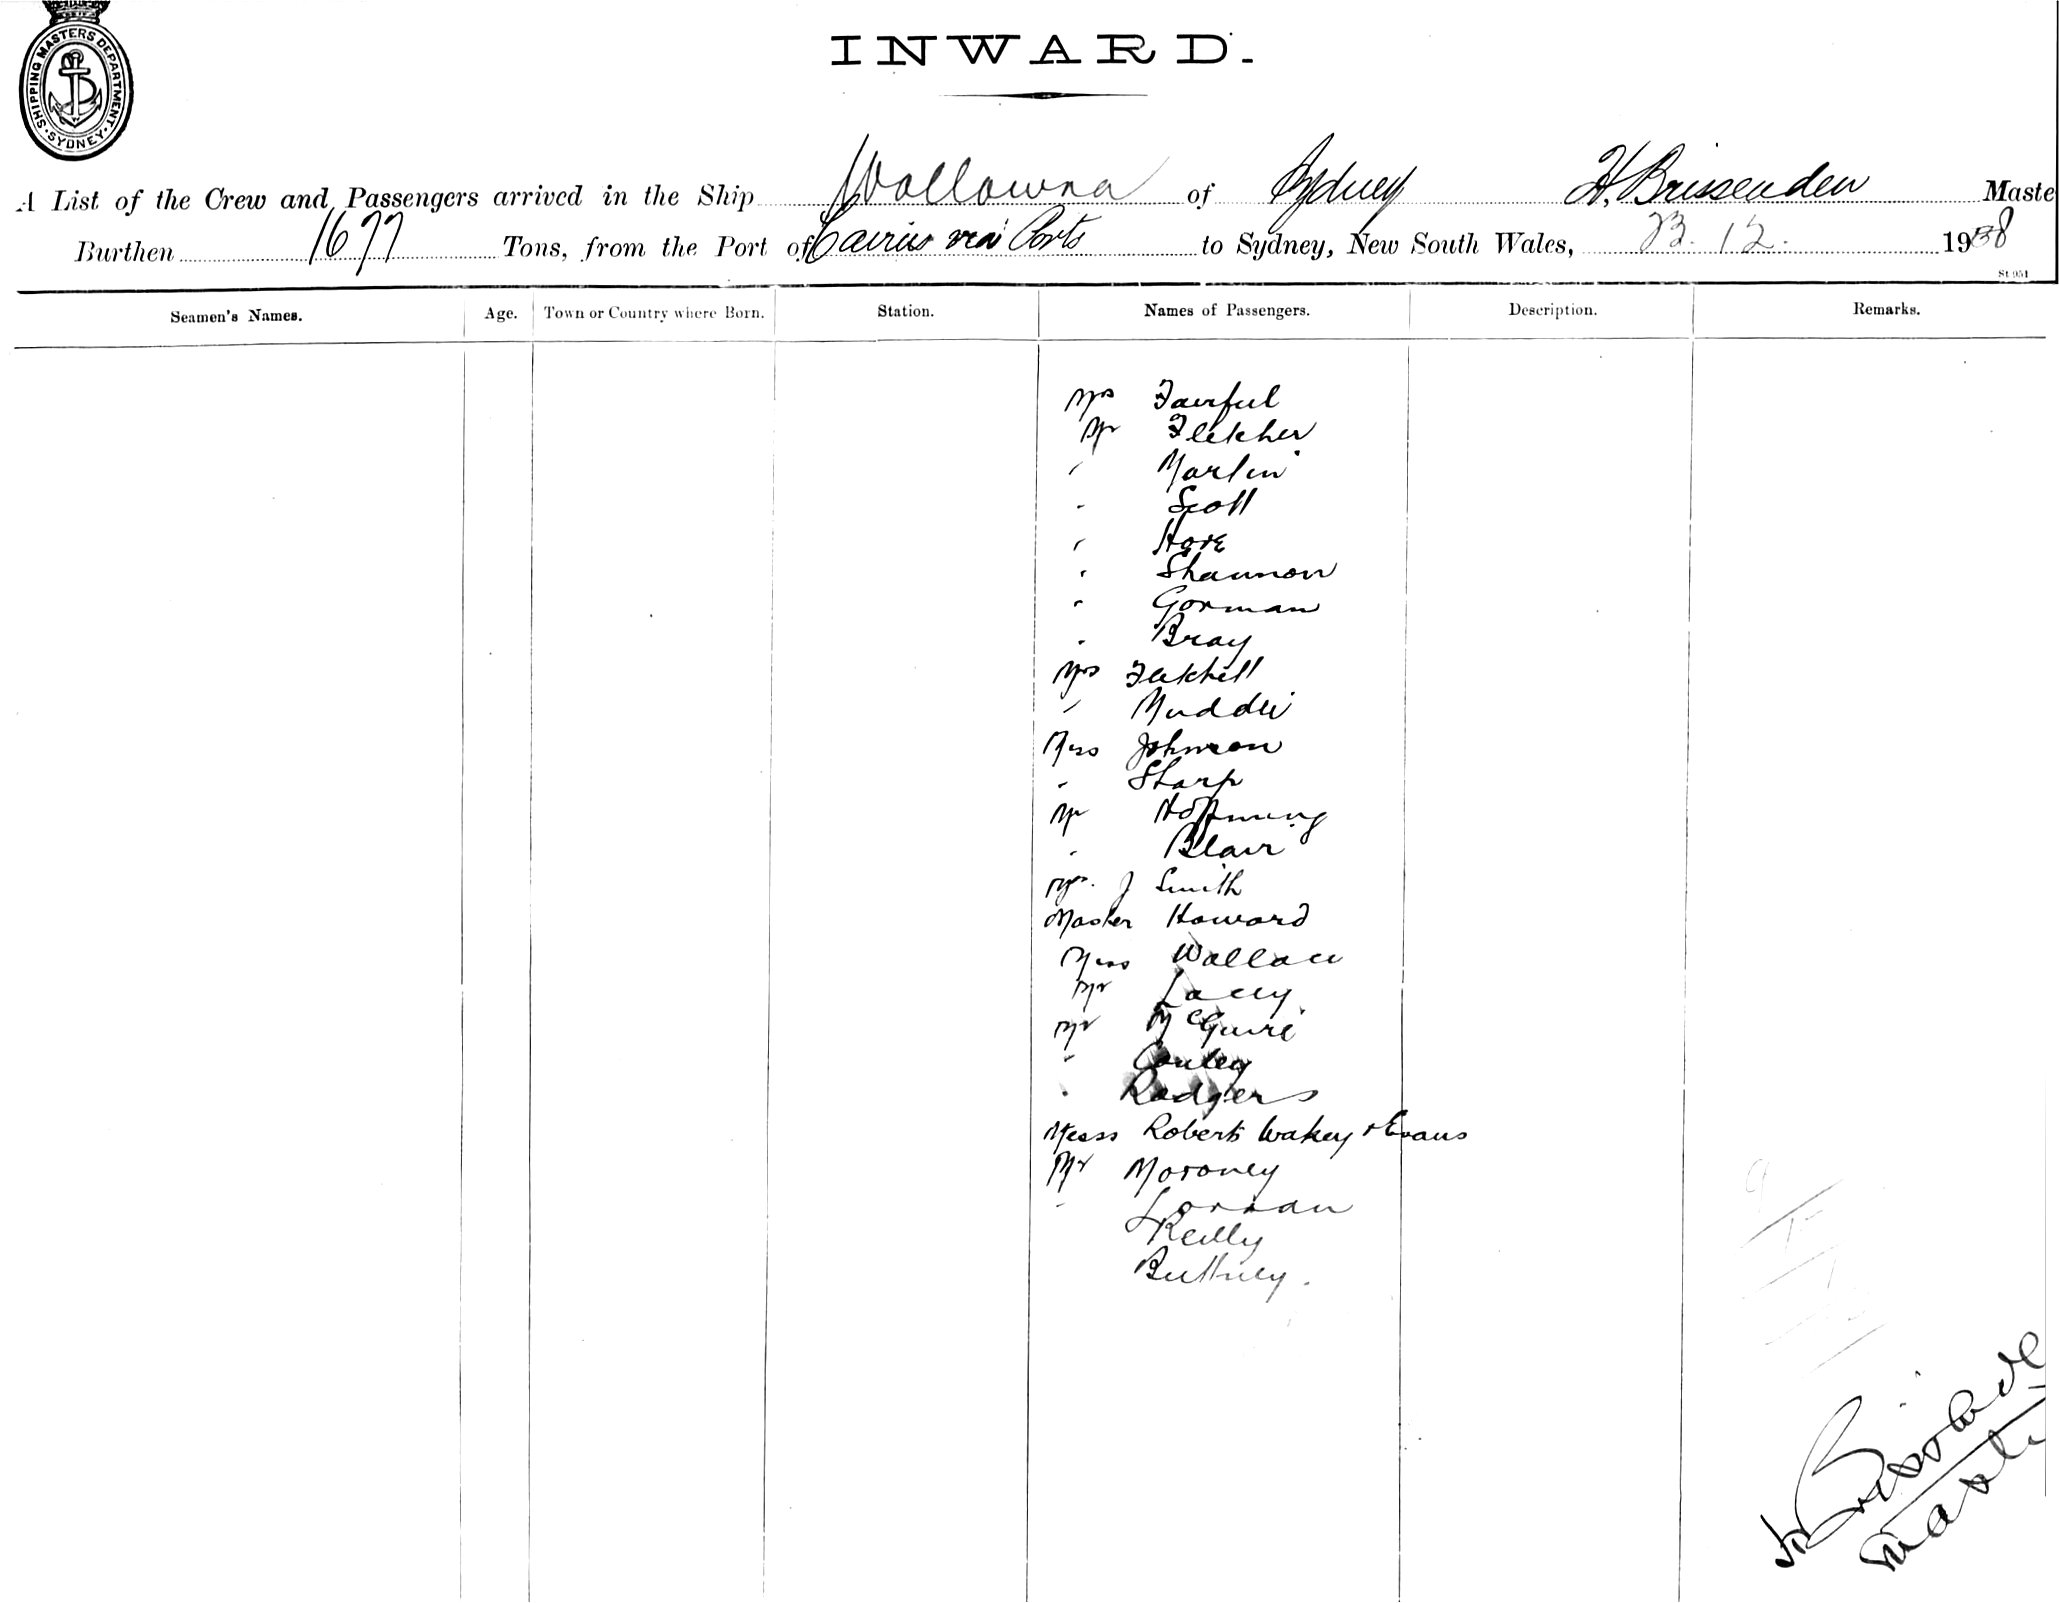 SHIPPING MASTERS DEPARTMENT
SYDNEY
INWARD.
A List of the Crew and Passengers arrived in the Ship Wollowra of Sydney H. Brissenden Maste
Burthen 1677 Tons, from the Port of Cairns via Ports to Sydney, New South Wales, 12. 19 8
St 951
Seamen's Names. Age. Town or Country where Born. Station. Names of Passengers. Description. Remarks.
Mrs Fairful
Mr Fletcher
" Martin
" Scott
" Hore
" Shannon
" Gorman
" Bray
Mrs
"
Miss Johnson
" Sharp
Mr Hoffnung
" Blair
J Smith
Master Howard
Miss Wallace
Mr Lacey
Mr McGuire
"
" Rodgers
Mess Roberts Wakey & Evans
Mr Moroney
"
Reilly
H Brissende
Maste